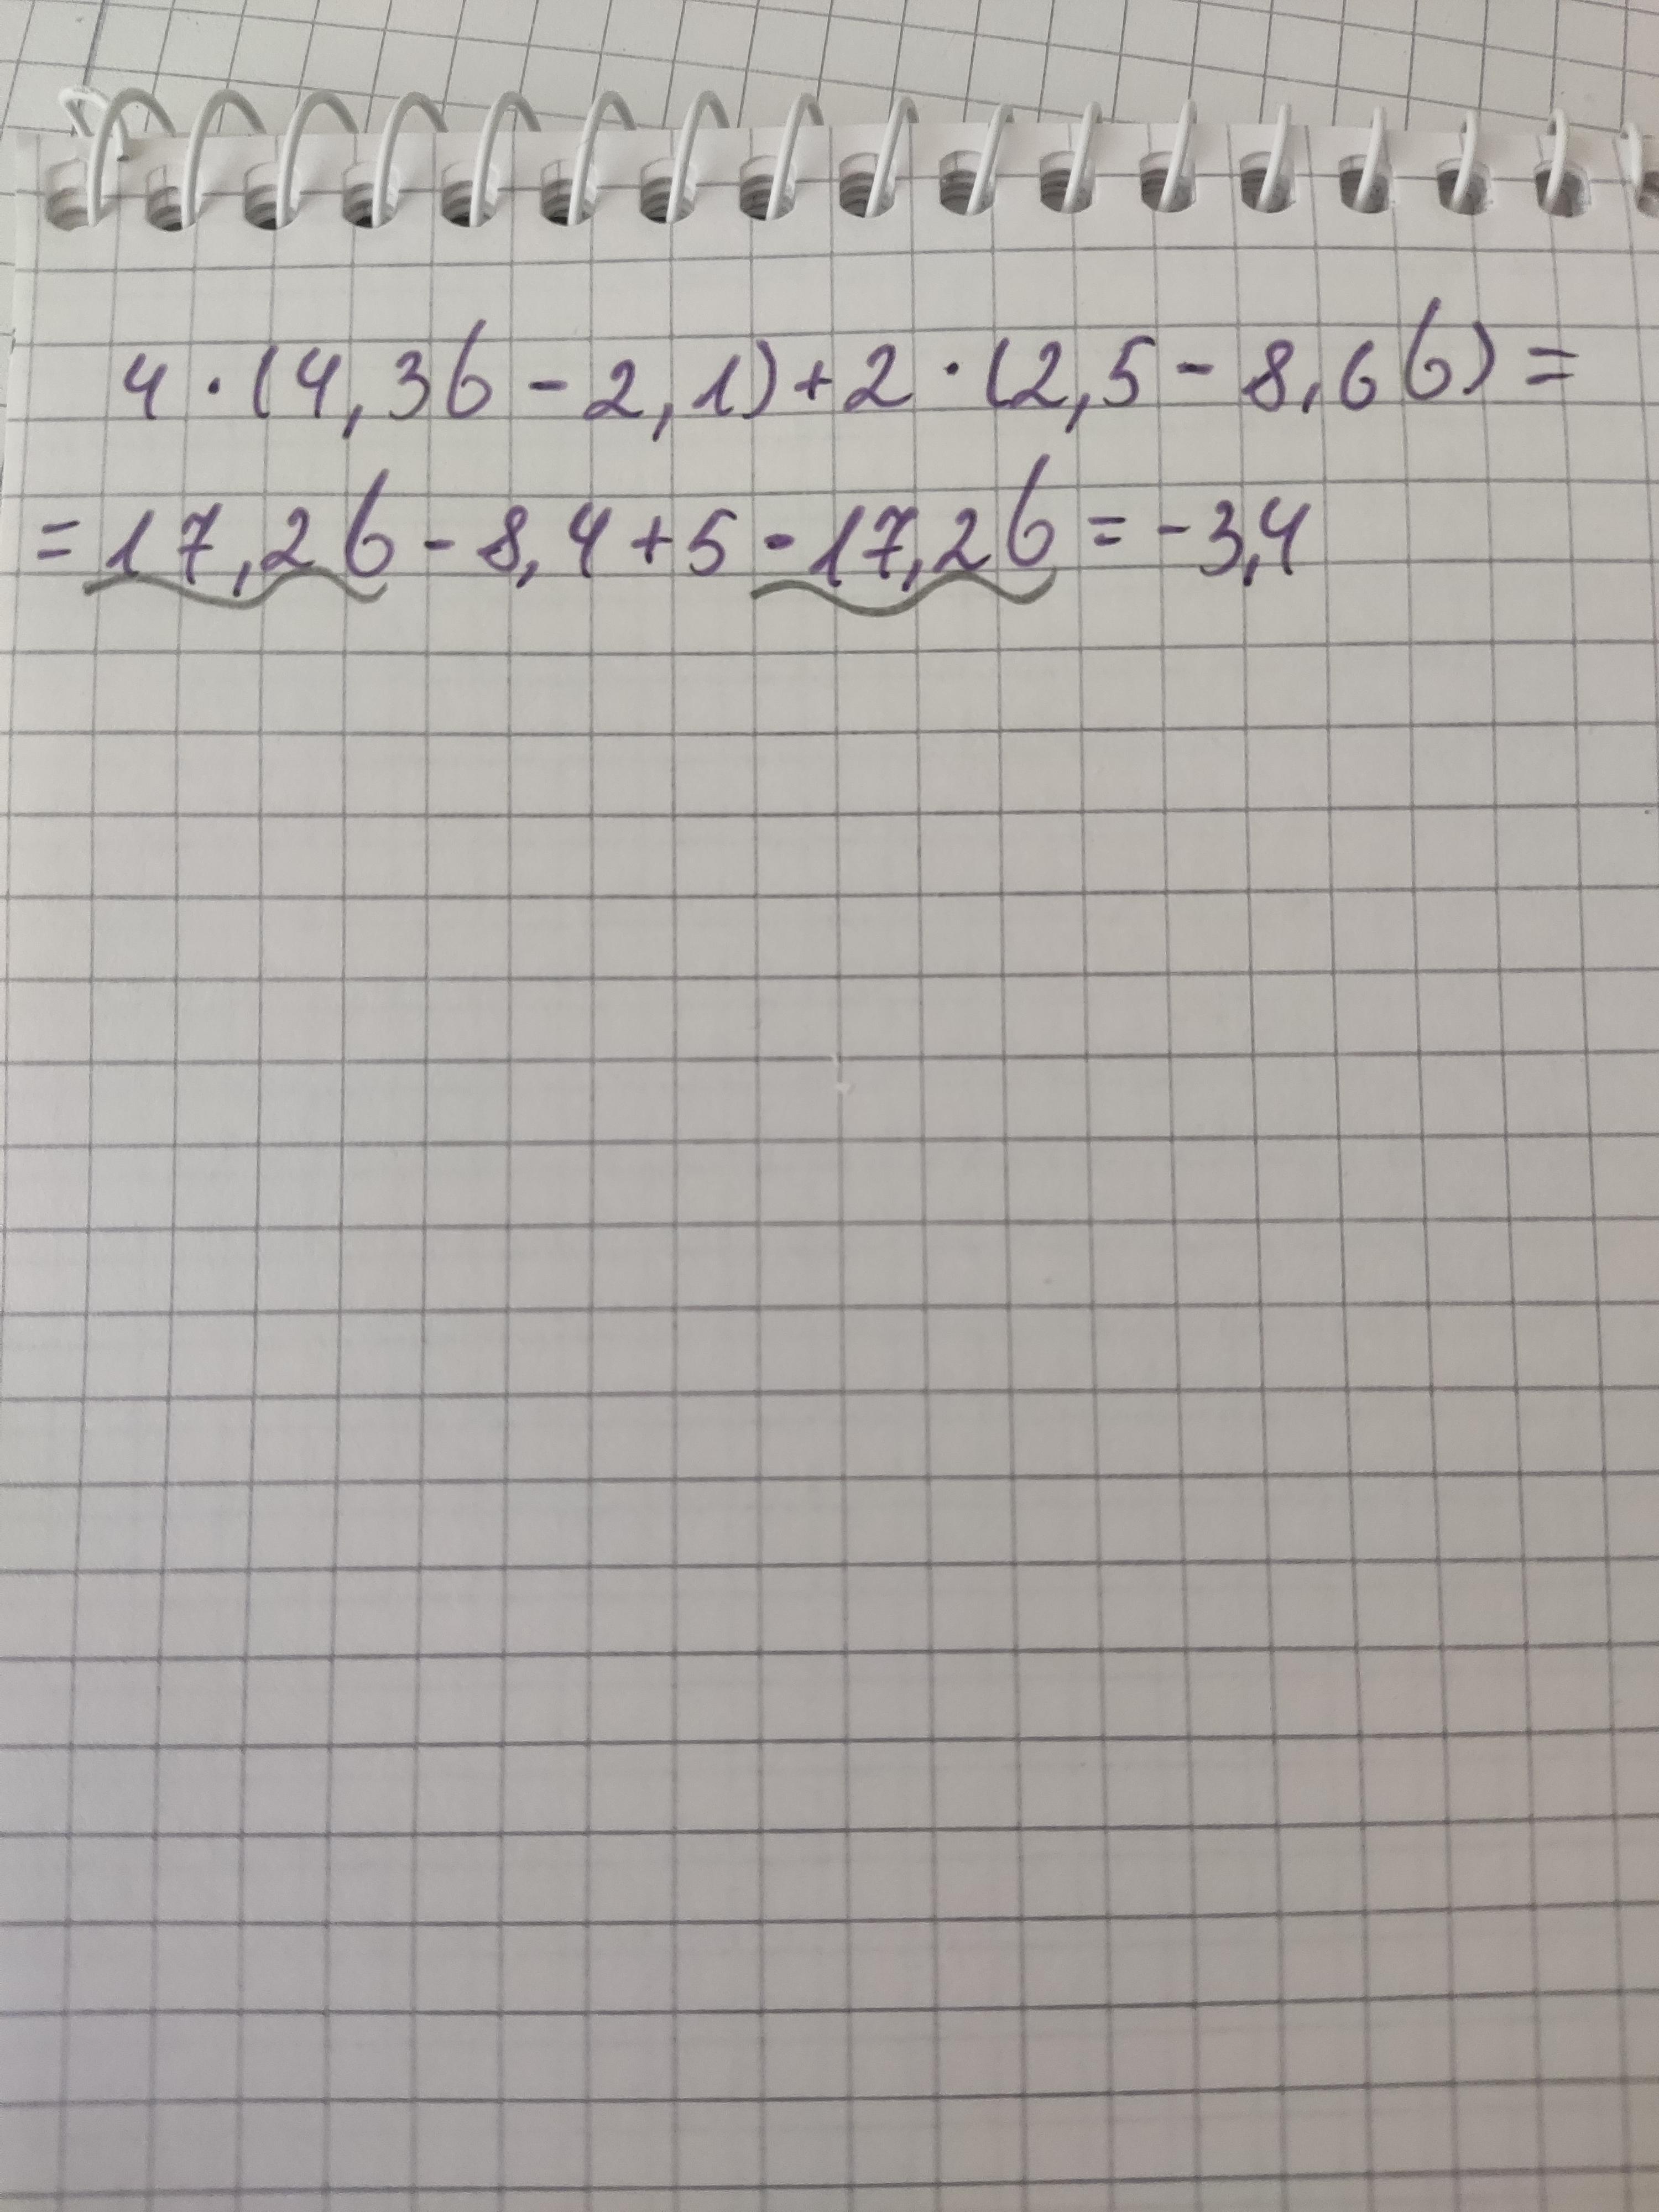 4 · (4,3b - 2,1) + 2 · (2,5 - 8,6b) =
= 17,2b - 8,4 + 5 - 17,2b = -3,4